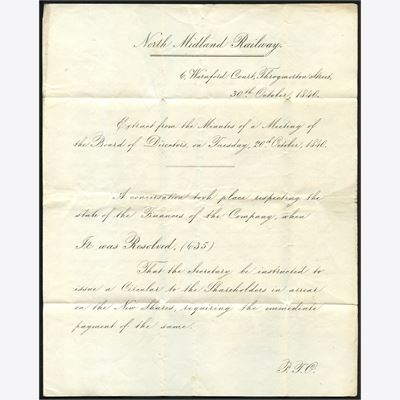 North Midland Railway.
6, Warnford Court, Throgmorton Street,
30th October, 1840.
Extract from the Minutes of a Meeting of
the Board of Directors, on Tuesday, 20th October, 1840.
A conversation took place respecting the
state of the Finances of the Company, when
It was Resolved, (635)
That the Secretary be instructed to
issue a Circular to the Shareholders in arrear
on the New Shares, requiring the immediate
payment of the same.